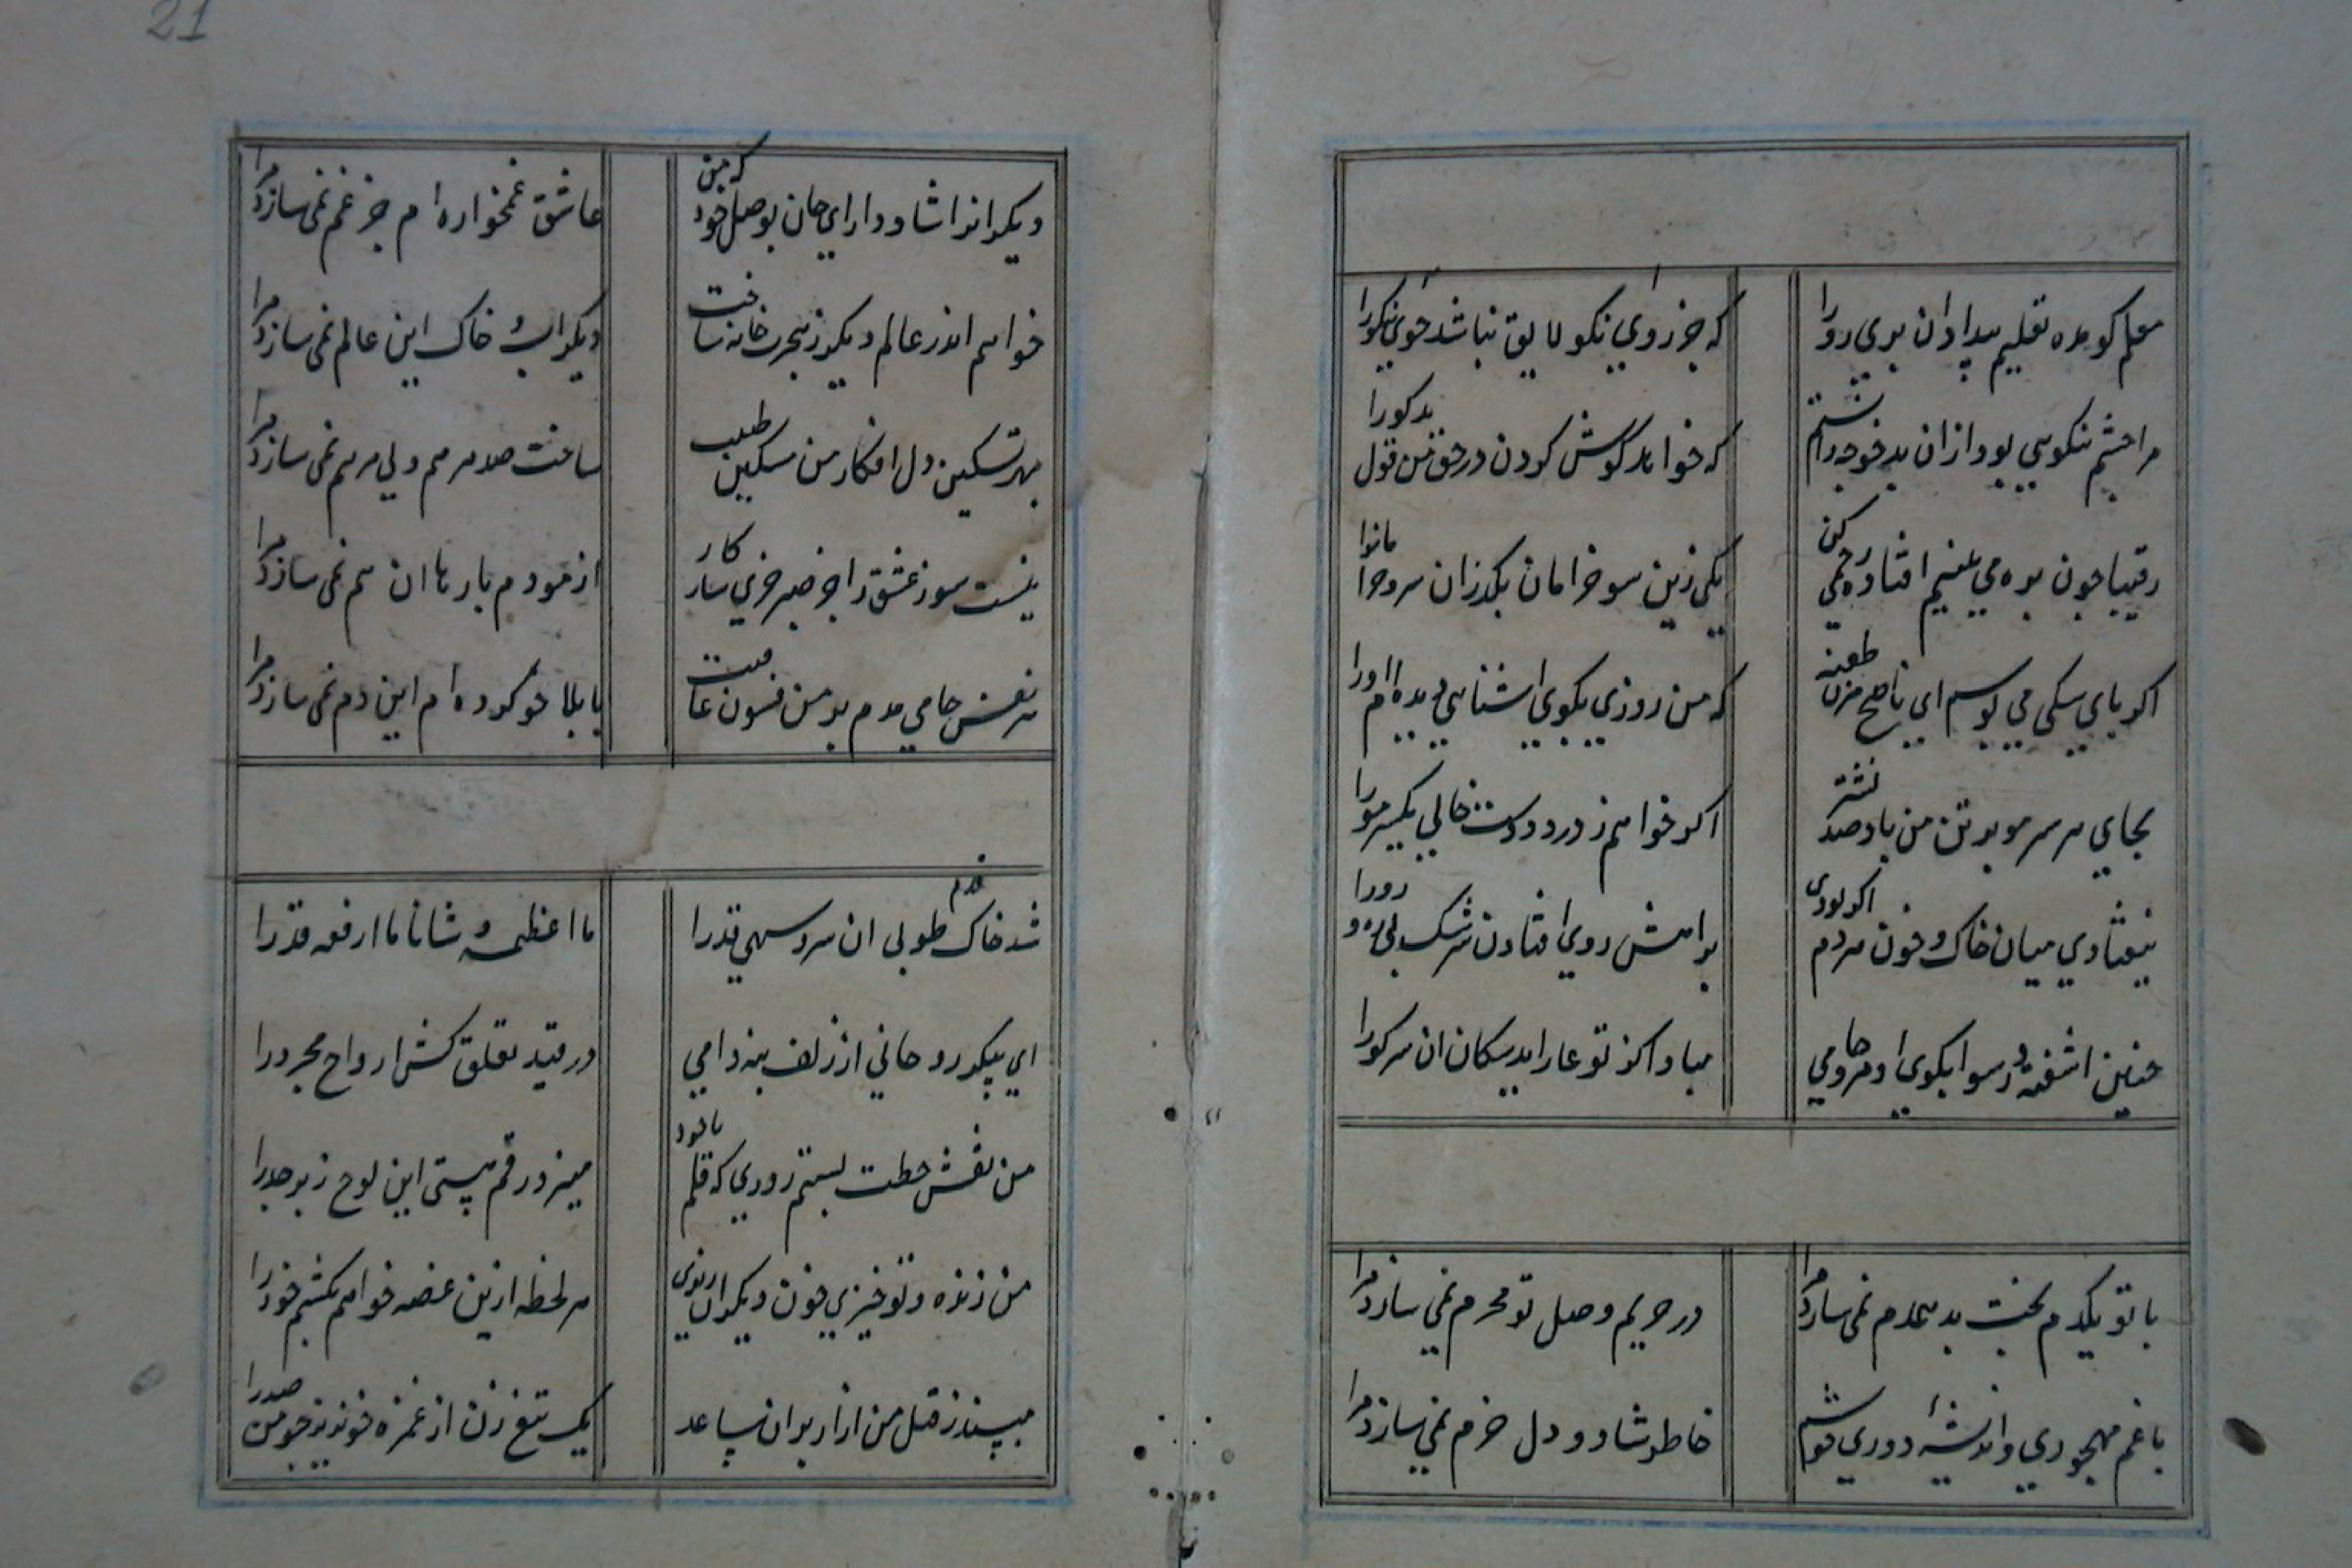 معلم کو مده تعلیم بیداد ان پری رو را
که جز خوی نکو لایق نباشد روی نیکو را
مرا چشم نکویی بود ازان بدخو چه دانستم
که خواهد گوش کردن در حق من قول بدکو را
رقیبا چون بره می بینیم افتاده رحمی کن
یکی زین سو خرامان بکذران سرو
اکر پای سکی می بوسم ای ناصح مزن طعنه
که من روزی بکوی اشنایی دیده ام او را
بجای هر سر مو بر تن من باد صد نشتر
اکر خواهم ز درد دوست خالی یکسر مو را
نیفتادی میان خاک و خون مردم اکر بودی
براهش روی افتادن سرشک
چنین اشفته و رسوا بکوی او مرو جامی
مبادا کز تو عار اید سکان ان سر کو را
با تو یکدم بخت بد همدم نمی سازد مرا
در حریم وصل تو محرم نمی سازد مرا
با غم مهجوری و اندیشهٔ دوری خوشم
خاطر شاد و دل خرم نمی سازد مرا
21
دیکرانرا شاد دار ای جان بوصل خود که من
عاشق غمخواره ام جز غم نمی سازد مرا
خواهم اندر عالم دیکر ز هجرت خانه ساخت
دیکر اب و خاک این عالم نمی سازد مرا
بهر تسکین دل افکار من مسکین طبیب
ساخت صد مرهم ولی مرهم نمی سازد مرا
نیست سوز عشق را جز صبر چیزی سازکار
ازمودم بارها ان هم نمی سازد مرا
هر نفس جامی مدم بر من فسون عافیت
با بلا خو کرده ام این دم نمی سازد مرا
شد خاک قدم طوبی ان سرو سهی قد را
ما اعظمه شانا ما ارفعه قدرا
ای پیکر روحانی از زلف بنه دامی
در قید تعلق کش ارواح مجرد را
من نقش خطت بستم زوری که قلم ناخود
میزد رقم هستی این لوح زبرجد را
من زنده و تو خیزی خون دیکران ریزی
هر لحظه ازین غصه خواهم بکشم خود را
مپسند ز قتل من ازار بران ساعد
یک تیغ زن از غمزه خونریز چو من صد را